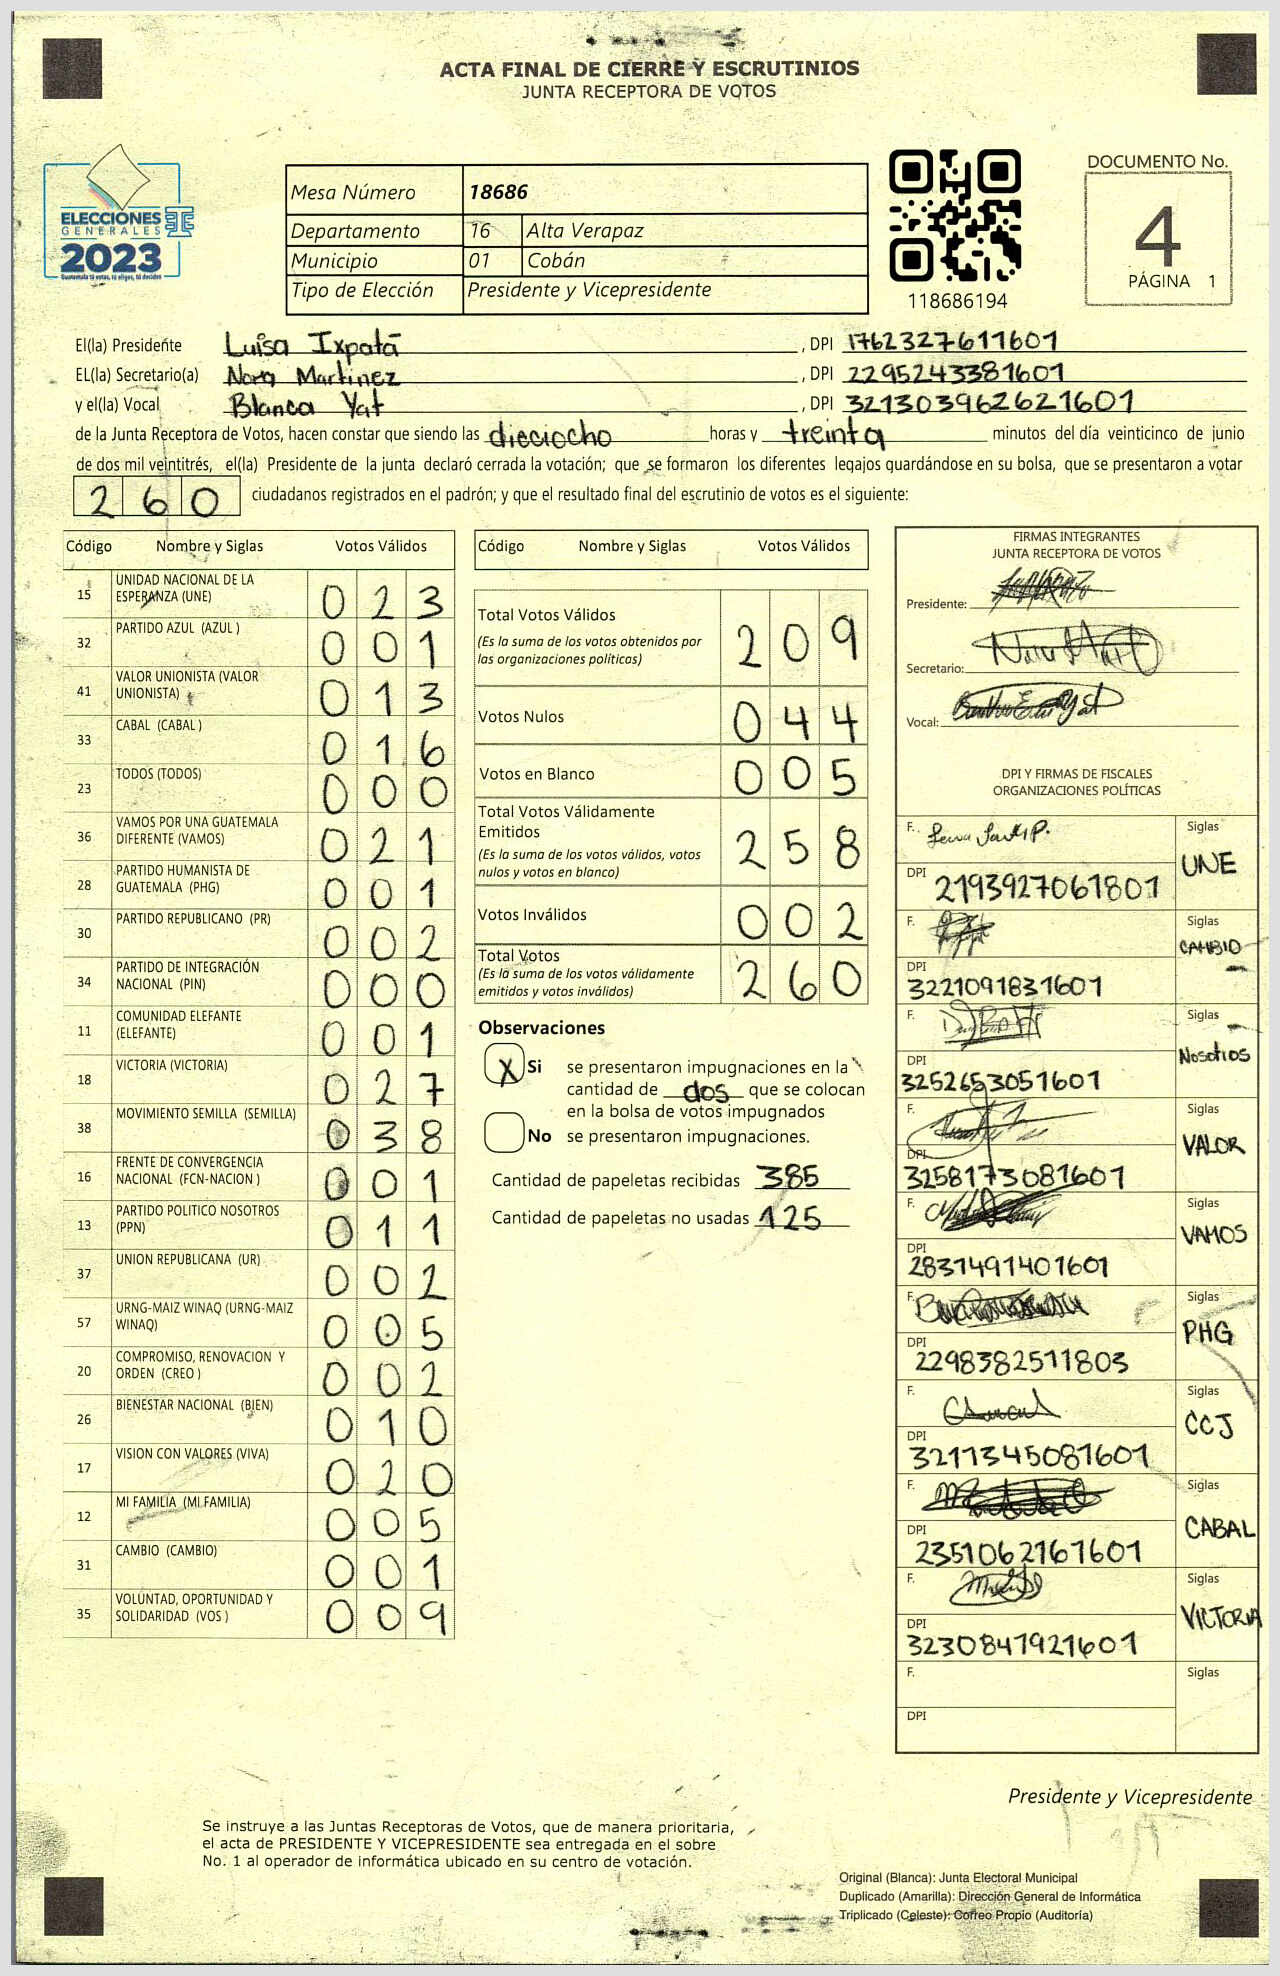 ACTA FINAL DE CIERRE Y ESCRUTINIOS
JUNTA RECEPTORA DE VOTOS
ELECCIONES
GENERALES
2023
Guatemala tú votas, tú eliges, tú decides
Mesa Número 18686
Departamento 16 Alta Verapaz
Municipio 01 Cobán
Tipo de Elección Presidente y Vicepresidente
118686194
DOCUMENTO No.
4
PÁGINA 1
El(la) Presidente Luisa Ixpatá , DPI 1762327611601
EL(la) Secretario(a) Nora Martinez , DPI 2295243381601
y el(la) Vocal Blanca Yat , DPI 321303962621601
de la Junta Receptora de Votos, hacen constar que siendo las dieciocho horas y treinta minutos del día veinticinco de junio
de dos mil veintitrés, el(la) Presidente de la junta declaró cerrada la votación; que se formaron los diferentes legajos guardándose en su bolsa, que se presentaron a votar
260 ciudadanos registrados en el padrón; y que el resultado final del escrutinio de votos es el siguiente:
Código Nombre y Siglas Votos Válidos
15 UNIDAD NACIONAL DE LA ESPERANZA (UNE) 023
32 PARTIDO AZUL (AZUL ) 001
41 VALOR UNIONISTA (VALOR UNIONISTA) 013
33 CABAL (CABAL ) 016
23 TODOS (TODOS) 000
36 VAMOS POR UNA GUATEMALA DIFERENTE (VAMOS) 021
28 PARTIDO HUMANISTA DE GUATEMALA (PHG) 001
30 PARTIDO REPUBLICANO (PR) 002
34 PARTIDO DE INTEGRACIÓN NACIONAL (PIN) 000
11 COMUNIDAD ELEFANTE (ELEFANTE) 001
18 VICTORIA (VICTORIA) 027
38 MOVIMIENTO SEMILLA (SEMILLA) 038
16 FRENTE DE CONVERGENCIA NACIONAL (FCN-NACION ) 001
13 PARTIDO POLITICO NOSOTROS (PPN) 011
37 UNION REPUBLICANA (UR) 002
57 URNG-MAIZ WINAQ (URNG-MAIZ WINAQ) 005
20 COMPROMISO, RENOVACION Y ORDEN (CREO ) 002
26 BIENESTAR NACIONAL (BIEN) 010
17 VISION CON VALORES (VIVA) 020
12 MI FAMILIA (MI FAMILIA) 005
31 CAMBIO (CAMBIO) 001
35 VOLUNTAD, OPORTUNIDAD Y SOLIDARIDAD (VOS ) 009
Código Nombre y Siglas Votos Válidos
Total Votos Válidos 209
(Es la suma de los votos obtenidos por
las organizaciones políticas)
Votos Nulos 044
Votos en Blanco 005
Total Votos Válidamente
Emitidos 258
(Es la suma de los votos válidos, votos
nulos y votos en blanco)
Votos Inválidos 002
Total Votos 260
(Es la suma de los votos válidamente
emitidos y votos inválidos)
Observaciones
X Si se presentaron impugnaciones en la
cantidad de dos que se colocan
en la bolsa de votos impugnados
No se presentaron impugnaciones.
Cantidad de papeletas recibidas 385
Cantidad de papeletas no usadas 125
FIRMAS INTEGRANTES
JUNTA RECEPTORA DE VOTOS
Presidente:
Secretario:
Vocal:
DPI Y FIRMAS DE FISCALES
ORGANIZACIONES POLÍTICAS
F. Siglas UNE
DPI 2193927061801
F. Siglas CAMBIO
DPI 3221091831601
F. Siglas Nosotros
DPI 3252653051601
F. Siglas VALOR
DPI 3258173081601
F. Siglas VAMOS
DPI 2831491401601
F. Siglas PHG
DPI 2298382511803
F. Siglas CCJ
DPI 3211345081601
F. Siglas CABAL
DPI 2351062161601
F. Siglas VICTORIA
DPI 3230841921601
F. Siglas
DPI
Presidente y Vicepresidente
Se instruye a las Juntas Receptoras de Votos, que de manera prioritaria,
el acta de PRESIDENTE Y VICEPRESIDENTE sea entregada en el sobre
No. 1 al operador de informática ubicado en su centro de votación.
Original (Blanca): Junta Electoral Municipal
Duplicado (Amarilla): Dirección General de Informática
Triplicado (Celeste): Correo Propio (Auditoría)